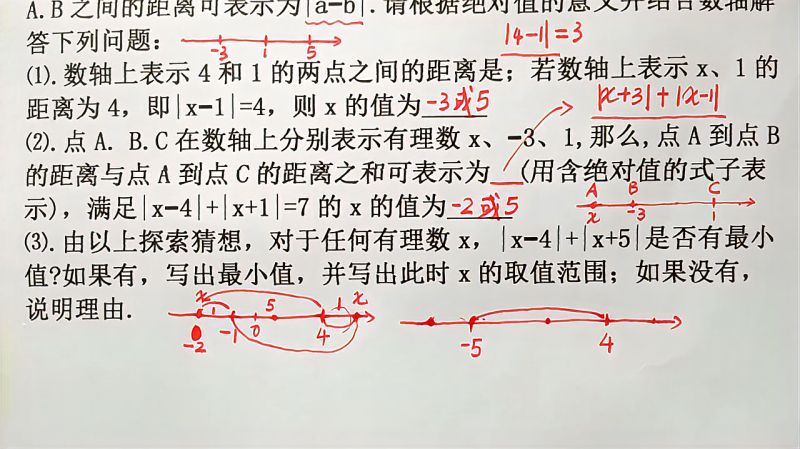 A.B 之间的距离可表示为|a-b|.请根据绝对值的意义并结合数轴解
答下列问题：
-3 1 5
|4-1|=3
⑴.数轴上表示 4 和 1 的两点之间的距离是；若数轴上表示 x、1 的
距离为 4，即|x-1|=4，则 x 的值为 -3或5
|x+3|+|x-1|
⑵.点 A. B.C 在数轴上分别表示有理数 x、-3、1,那么,点 A 到点 B
的距离与点 A 到点 C 的距离之和可表示为__(用含绝对值的式子表
示)，满足|x-4|+|x+1|=7 的 x 的值为 -2或5
A B C
x -3 1
⑶.由以上探索猜想，对于任何有理数 x，|x-4|+|x+5|是否有最小
值?如果有，写出最小值，并写出此时 x 的取值范围；如果没有，
说明理由.
x 1 5 1 x
-2 -1 0 4
-5 4